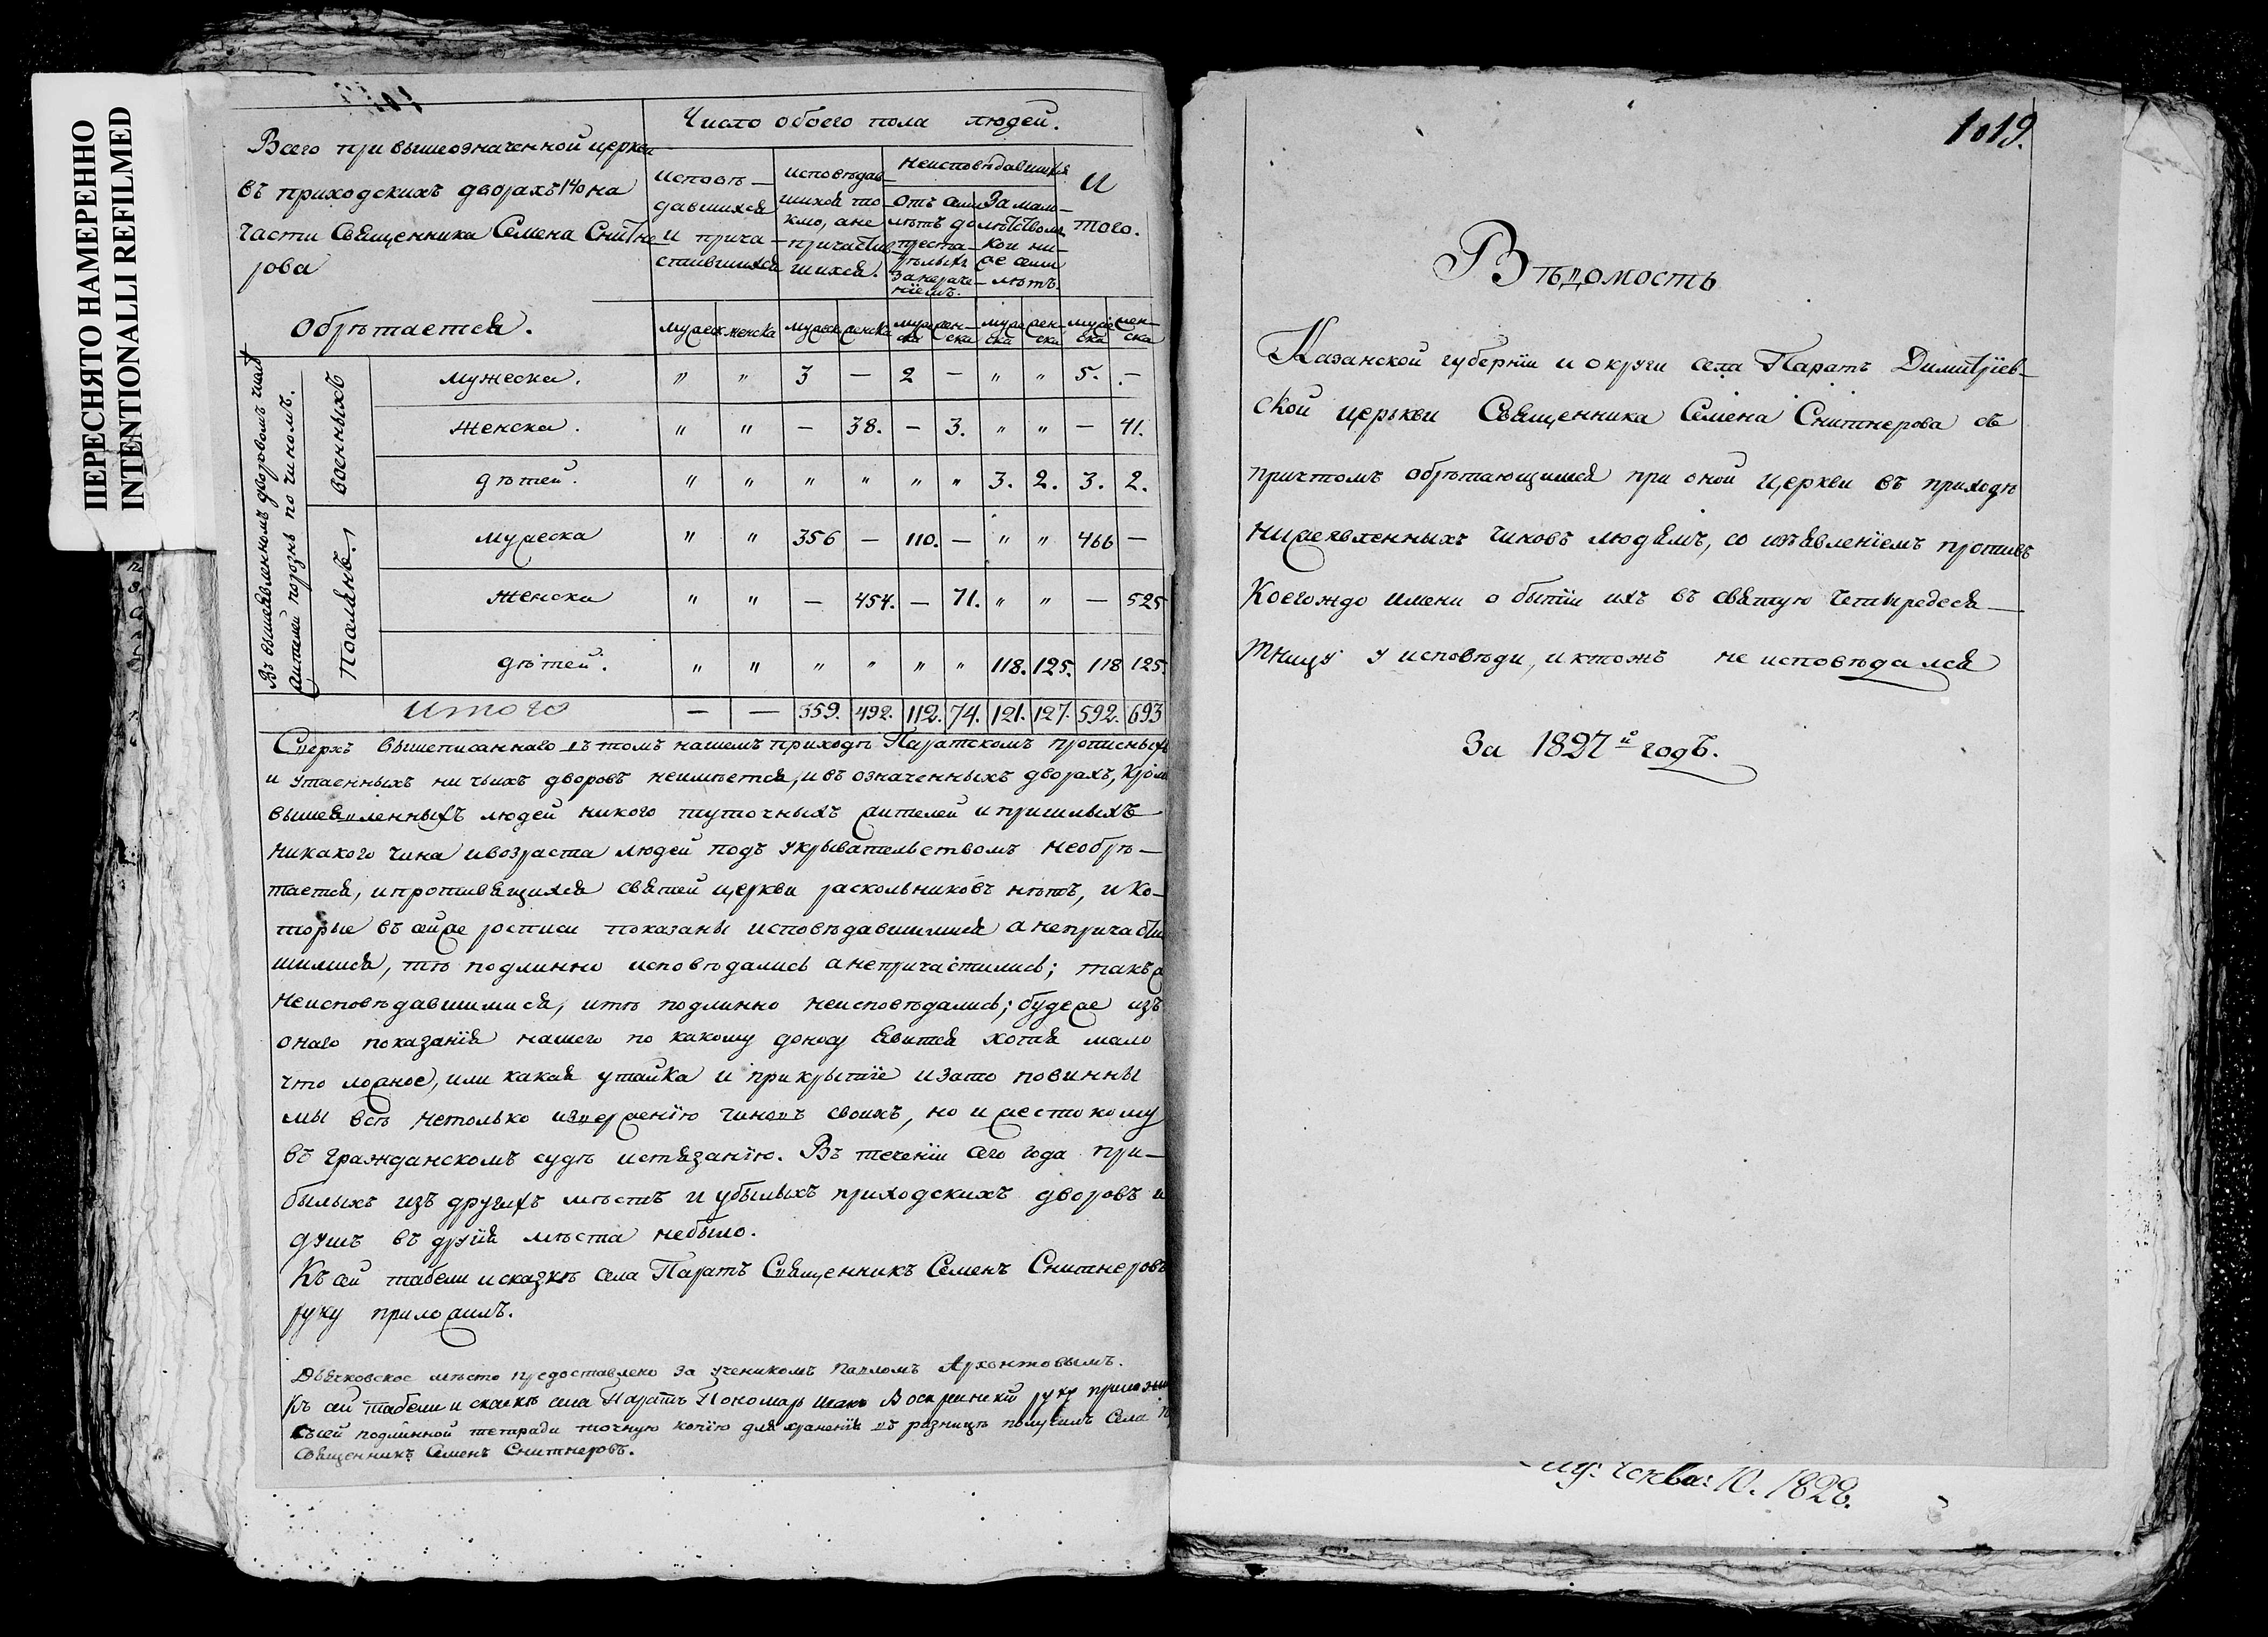 ПЕРЕСНЯТО НАМЕРЕННО
INTENTIONALLI REFILMED
Число обоего пола людей.
Всего при вышеозначенной церкви
въ приходскихъ дворахъ 140 на
части Священника Семена Снитне
рова
Обрѣтается.
Исповѣ-
давшихся
и прича-
стившихся
исповѣдав-
шихся то-
кмо, а не
причастив-
шихся.
неисповѣдавшихся
Отъ семи
лѣтъ до
преста-
рѣлыхъ
за нераче-
нiемъ.
За мало-
лѣтствомъ
кои ни-
же семи
лѣтъ.
И
того.
мужеск женска мужеск женска мужеска женска мужеска женска мужеска женска
Въ вышеявленномъ дворовомъ числѣ
жителей порознь по чиномъ.
Военныхъ
мужеска. " " 3 — 2 — " " 5. —
женска. " " — 38. — 3. " " — 41.
дѣтей. " " " " " " 3. 2. 3. 2.
Поселянъ.
мужеска " " 356 — 110. — " " 466 —
женска " " — 454. — 71. " " — 525
дѣтей. " " " " " " 118. 125. 118 125.
итого — — 359. 492. 112. 74. 121. 127. 592. 693
Сверхъ вышеписаннаго въ томъ нашемъ приходѣ Паратскомъ прописныхъ
и утаенныхъ ни чьихъ дворовъ неимѣется, и въ означенныхъ дворахъ, кромѣ
вышеявленныхъ людей никого туточныхъ жителей и пришлыхъ
никакого чина ивозраста людей подъ укрывательствомъ необрѣ-
тается, ипротивящихся святей церкви раскольниковъ нѣтъ, и ко-
торые въ сей же росписи показаны исповѣдавшимися а непричасти
шимися, тѣ подлинно исповѣдались а непричастились; такъ ж
неисповѣдавшимися, итѣ подлинно неисповѣдались; буде же изъ
онаго показанiя нашего по какому доносу явится хотя мало
что ложное, или какая утайка и прикрытiе изато повинны
мы всѣ нетолько изверженiю чиновъ своихъ, но и жестокому
въ гражданскомъ судѣ истязанiю. Въ теченiи сего года при-
былыхъ изъ другихъ мѣстъ и убылыхъ приходскихъ дворовъ и
душъ въ другiя мѣста небыло.
Къ сей табели исказкѣ села Паратъ Священникъ Семенъ Снитнеровъ
руку приложилъ.
Дьячковское мѣсто предоставлено за ученикомъ Павломъ Архонтовымъ.
Къ сей табели и сказкѣ села Паратъ Пономарь Исакъ руку приложи
Съ сей подлинной тетради точную копiю для храненiя въ ризницѣ получилъ Села
Священникъ Семенъ Снитнеровъ.
1019.
Вѣдомость
Казанской губернiи и округи села Паратъ Димитрiев-
ской церькви Священника Семена Снитнерова съ
причтомъ обрѣтающимся при оной церкви въ приходѣ
нижеявленныхъ чиновъ людямъ, со изъявленiемъ противъ
коегождо имени о бытiи ихъ въ святую четыредеся-
тницу у исповѣди, и ктожъ не исповѣдался
За 1827й годъ.
10. 1828.